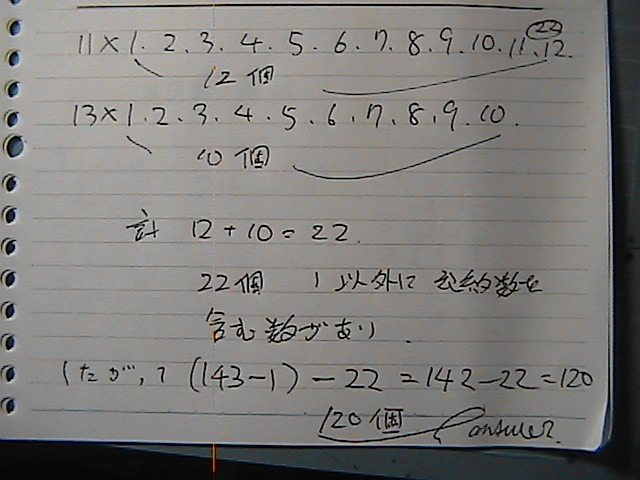 22
11×1.2.3.4.5.6.7.8.9.10.11.12
12個
13×1.2.3.4.5.6.7.8.9.10.
10個
計 12+10=22.
22個 1以外に公約数を
含む数があり.
したがって (143-1)-22=142-22=120
120個 answer.